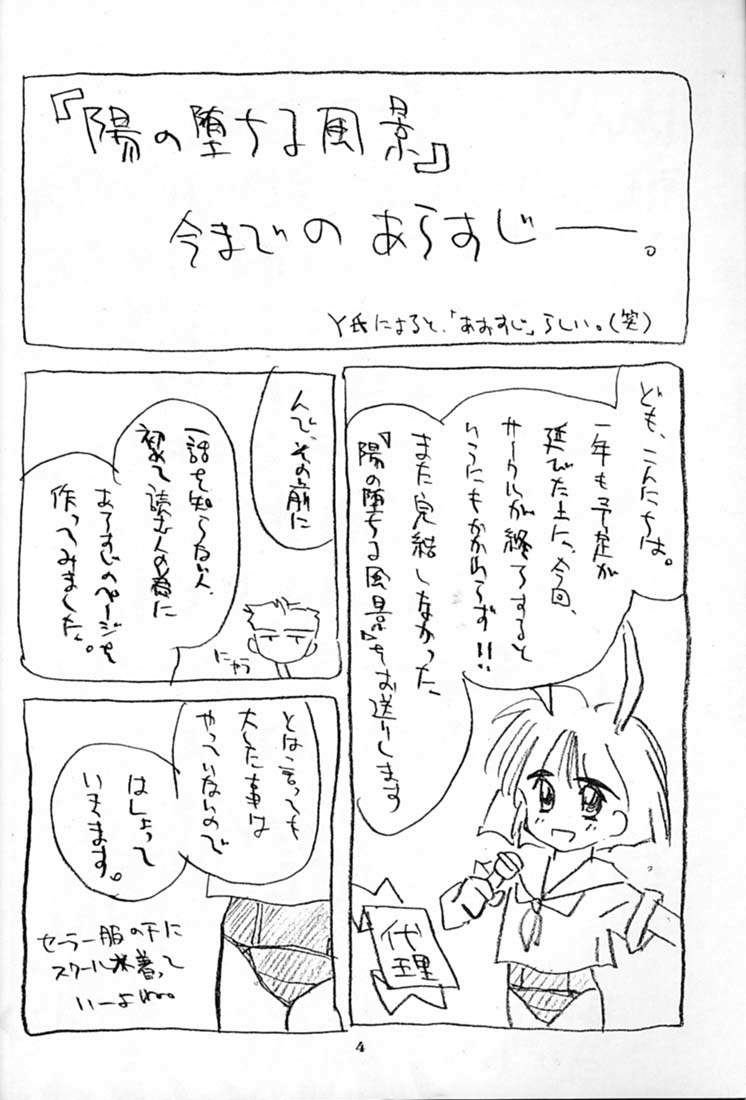 『陽の堕ちる風景』
今まで の あらすじー。
Y氏によると、「あおすじ」らしい。(笑)
ども、こんにちは。
一年も予定が
延びた上に、今回、
サークルが終了すると
いうにもかかわらず!!
また完結しなかった、
『陽の堕ちる風景』をお送りします
代理
んで、その前に
一話を知らない人、
初めて読む人の為に
あらすじのページを
作ってみました。
にゃう
とは言っても
大した事は
やっていないので
はしょって
いきます。
セーラー服の下に
スクール水着って
いーよね
4